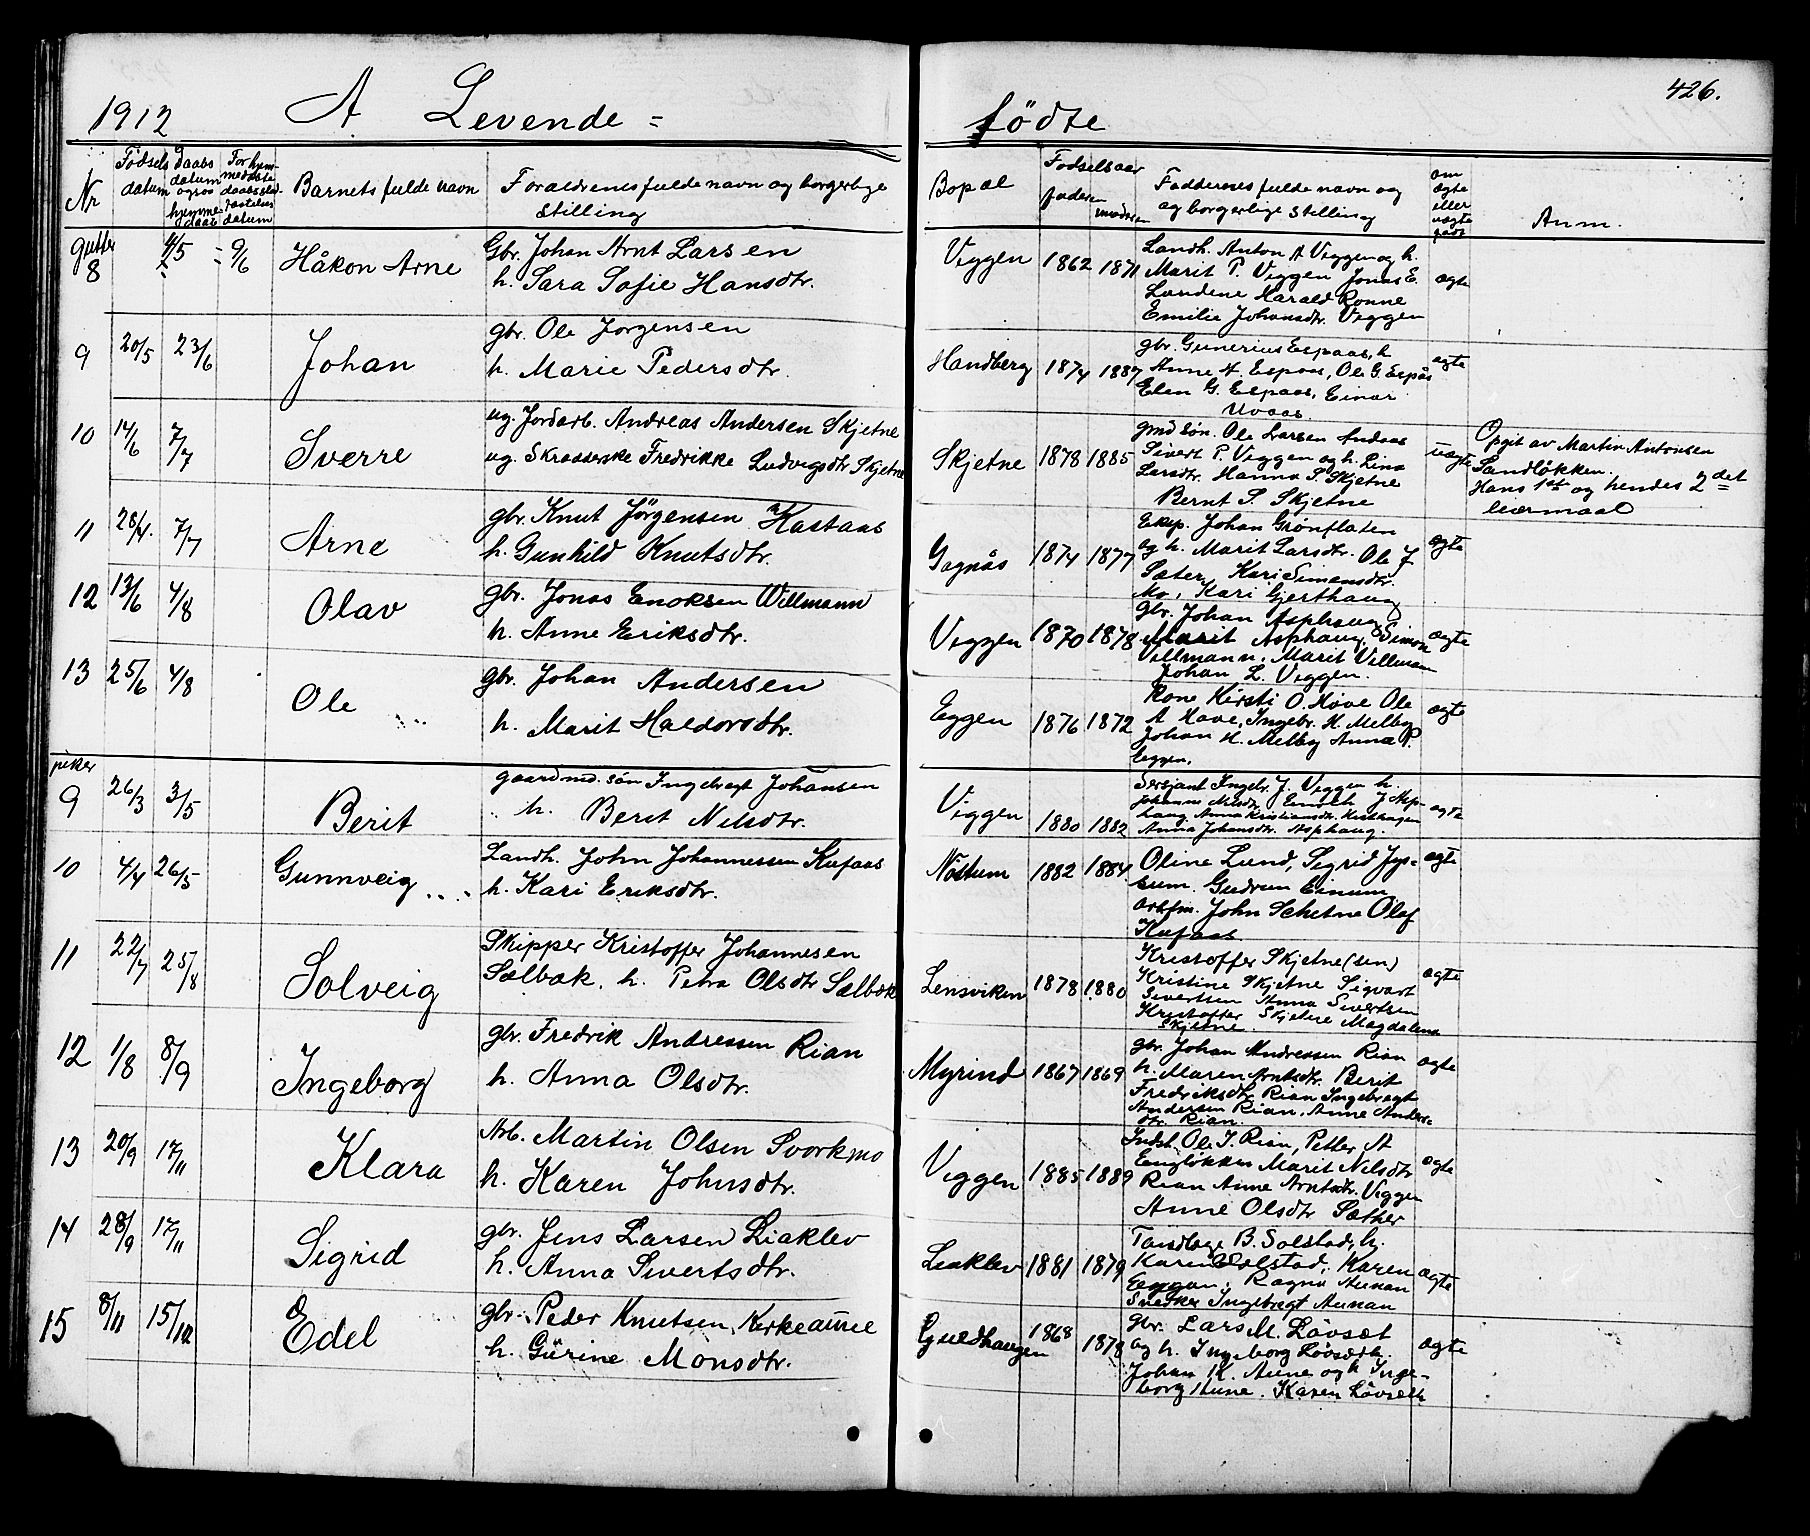 1912 A Levende = fødte 426.
Nr
Fødsels datum
daabs datum
og saa hjemme daab
Barnets fulde navn
Foraeldrenes fulde navn og borgerlige stilling
Bopael
Fødselsaar
faderen
moderen
Faddernes fulde navn og og borgerlige stilling
om ægte eller uægte født
Anm.
gutter
8 4/5 9/6 Håkon Arne
Gbr. Johan Arnt Larsen
h. Sara Sofie Hansdtr.
Viggen 1862 1871
Landh. Anton A Viggen og h.
Marit P. Viggen Jonas E.
Lundene Harald Rønne
Emilie Johansdtr. Viggen
ægte
9 20/5 23/6 Johan
gbr. Ole Jørgensen
h. Marie Pedersdtr.
Handberg 1874 1887
gbr. Gunerius Espaas, h
Anne A. Espaas, Ole G. Espås
Elen G. Espaas, Einar
Moaas.
ægte
10 14/6 7/7 Sverre
ug. Jordarb. Andreas Andersen Skjetne
ug. Skrædderske Fredrikke Ludvigsdtr Skjetne
Skjetne 1878 1885
gmd søn. Ole Larsen
Sivert P. Viggen og h. Lina
Larsdtr. Hanna S. Skjetne
Bernt S. Skjetne
uægte
Opgit av Martin Antonsen
Sandløkken.
Hans 1st og hendes 2det
leiermaal
11 28/4. 7/7 Arne
gbr. Knut Jørgensen Kastaas
h. Gunhild Knutsdtr.
Gagnås 1874 1877
Ekep. Johan Grønflaten
og h. Marit Larsdtr. Ole J
Sæter, Kari Simonsdtr.
Mo, Kari Gjerthaug
ægte
12 13/6 4/8 Olav
gbr. Jonas Enoksen Willmann
h. Anne Eriksdtr.
Viggen 1870 1878
Gbr. Johan Asphaug
Marit Asphaug, Simon
Villmann. Marit Villman
Johan L. Viggen.
ægte
13 25/6 4/8 Ole
gbr. Johan Andersen
h. Marit Haldorsdtr.
Eggen 1876 1872
Kone Kirsti O. Hove Ole
A Hove, Ingebr. H. Melby
Johan H. Melby Anna P.
Eggen.
ægte
piker
9 26/3 3/5 Berit
gaardmd. søn Ingebragt Johansen
h. Berit Nilsdtr.
Viggen 1880 1882
Sersjant Ingebr. J. Viggen h.
Johanna Nilsdtr. Enoch J Asp-
haug Anna Kristiansdtr.
Anna Johansdtr. Asphaug.
ægte
10 4/4 26/5 Gunnveig
Landh. John Johannessen Kufaas
h. Kari Eriksdtr.
Nostum 1882 1884
Oline Lund, Sigrid Jys-
sum. Gudrun Einum
arbfm. John Schetne Olaf
Kufaas
ægte
11 22/7 25/8 Solveig
Skipper Kristoffer Johannesen
Selbæk, h. Petra Olsdtr Selbæk
Lensviken 1878 1880
Kristoffer Skjetne (sen)
Kristine Skjetne Sigvart
Sivertsen Anna Sivertsen
Kristoffer Skjetne Magdalena
Skjetne
ægte
12 1/8 8/9 Ingeborg
gbr. Fredrik Andressen Rian
h. Anna Olsdtr.
Myrind 1867 1869
gbr. Johan Andressen Rian
h. Maren Arntsdtr. Berit
Fredriksdtr Rian Ingebragt
Andersen Rian. Anne Anders-
dtr. Rian.
ægte
13 20/9 17/11 Klara
Arb. Martin Olsen Svorkmo
h. Karen Johnsdtr.
Viggen 1885 1889
Indst. Ole I. Rian, Petter A
Engløkken Marit Nilsdtr
Rian Anne Arntsdtr. Viggen
Anne Olsdtr Sæther
ægte
14 28/9 17/11 Sigrid
gbr. Jens Larsen Liaklev
h. Anna Sivertsdtr.
Liaklev 1881 1879
Tandlæge B. Solstad, h.
Karen Solstad, Karen
Eggan, Ragna Aunan
Snedker Ingebregt Aunan
ægte
15 8/11 15/12 Edel
gbr. Peder Knutsen Kirkeaune
h. Gurine Monsdtr.
Gjueldhaugen 1868 1878
Gbr. Lars M. Løvset
og h. Ingeborg Løvseth.
Johan K. Aune og h Inge-
borg Aune. Karen Løvseth
ægte